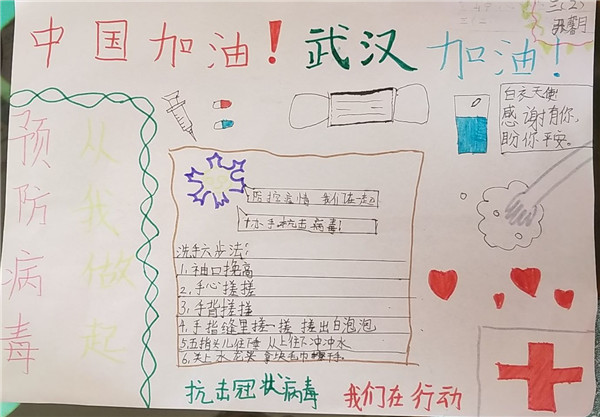 三(2)
中国加油！武汉加油！
白衣天使
感谢有你，
助你平安。
预防病毒
从我做起
防控疫情 我们在
小手抗击病毒！
洗手六步法：
1.袖口挽高
2.手心搓搓
3.手背搓搓
4.手指缝里搓一搓 搓出白泡泡
5.五指头儿往下垂 从上往下冲冲水
6.关上水龙头 拿块毛巾擦干
抗击冠状病毒 我们在行动